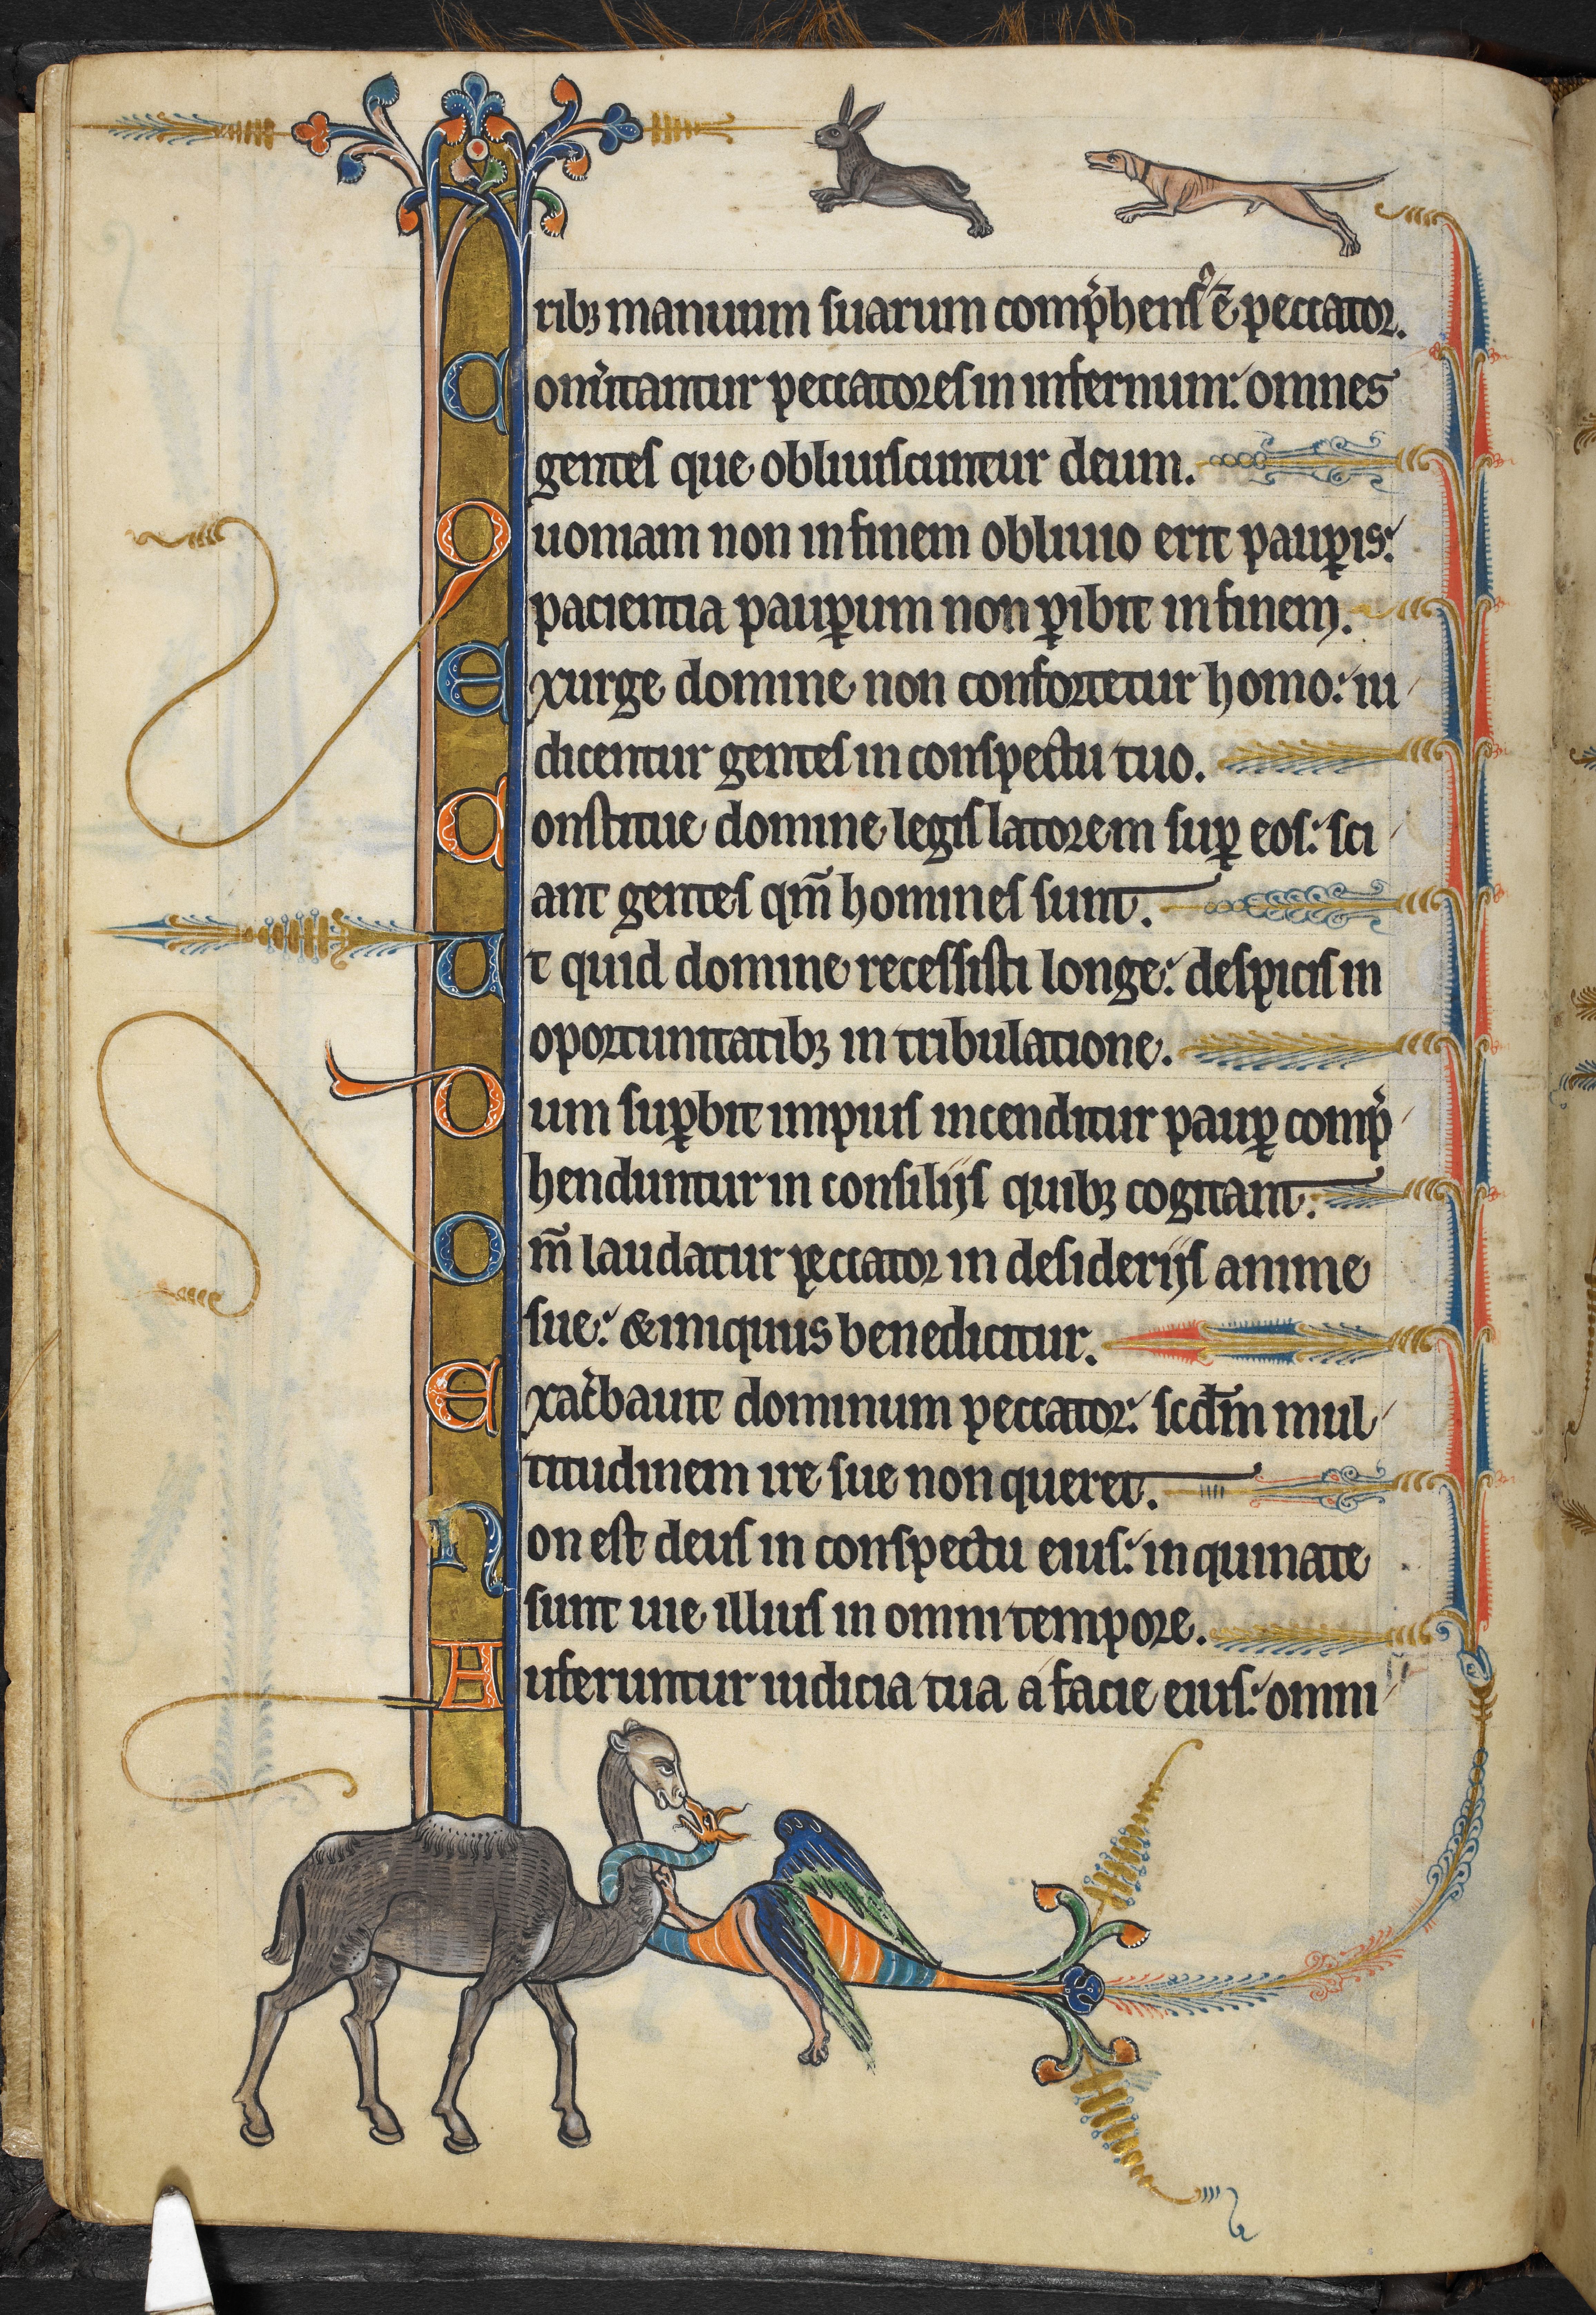 ribꝫ manuum suarum comp̾hensꝰ ē peccator.
Conu̾tantur peccatores in infernum: omnes
gentes que obliuiscuntur deum.
Quoniam non in finem obliuio erit paup̱is:
pacientia paup̱um non p̱ibit in finem.
Exurge domine non confortetur homo: iu
dicentur gentes in conspectu tuo.
Constitue domine legislatorem sup̱ eos: sci
ant gentes qm̄ homines sunt.
Ut quid domine recessisti longe: despicis in
oportunitatibꝫ in tribulatione.
Dum sup̱bit impius incenditur paup̱ comp̾
henduntur in consiliis quibꝫ cogitant.
Qm̄ laudatur peccator in desideriis anime
sue: & iniquus benedicitur.
Exac̾bauit dominum peccator: scd̄m mul
titudinem ire sue non queret.
Non est deus in conspectu eius: inquinate
sunt uie illius in omni tempore.
Auferuntur iudicia tua a facie eius: omni